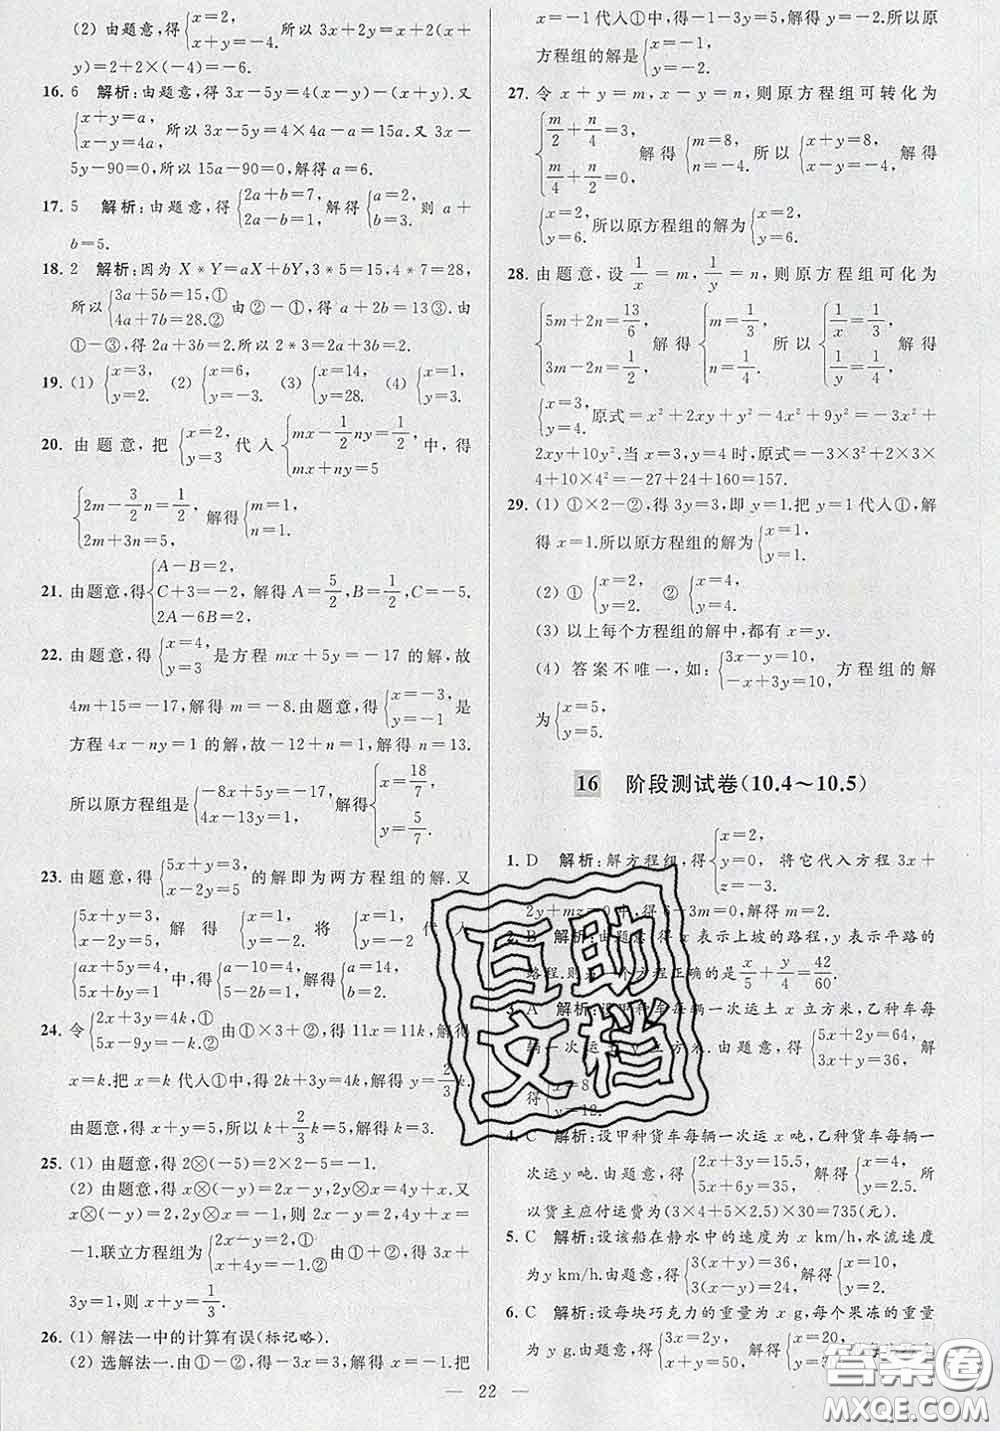 (2) 由题意,得{x=2, x+y=-4. 所以 3x+2y=x+2(x+
y)=2+2×(-4)=-6.
16. 6 解析:由题意,得 3x-5y=4(x-y)-(x+y). 又
{x+y=a, x-y=4a, 所以 3x-5y=4×4a-a=15a. 又 3x-
5y-90=0,所以 15a-90=0,解得 a=6.
17. 5 解析:由题意,得{2a+b=7, 2a-b=1, 解得{a=2, b=3. 则 a+
b=5.
18. 2 解析:因为 X*Y=aX+bY,3*5=15,4*7=28,
所以{3a+5b=15,① 4a+7b=28.② 由②-①,得 a+2b=13③. 由
①-③,得 2a+3b=2.所以 2*3=2a+3b=2.
19. (1) {x=3, y=2. (2) {x=6, y=-3. (3) {x=14, y=28. (4) {x=1, y=2.
20. 由题意,把{x=2, y=3 代入{mx-1/2ny=1/2, mx+ny=5 中,得
{2m-3/2n=1/2, 2m+3n=5, 解得{m=1, n=1.
21. 由题意,得{A-B=2, C+3=-2, 2A-6B=2, 解得 A=5/2,B=1/2,C=-5.
22. 由题意,得{x=4, y=3 是方程 mx+5y=-17 的解,故
4m+15=-17,解得 m=-8.由题意,得{x=-3, y=-1 是
方程 4x-ny=1 的解,故-12+n=1,解得 n=13.
所以原方程组是{-8x+5y=-17, 4x-13y=1. 解得{x=18/7, y=5/7.
23. 由题意,得{5x+y=3, x-2y=5 的解即为两方程组的解.又
{5x+y=3, x-2y=5, 解得{x=1, y=-2. 将{x=1, y=-2 代入
{ax+5y=4, 5x+by=1 中,得{a-10=4, 5-2b=1, 解得{a=14, b=2.
24. 令{2x+3y=4k,① 5x-9y=-k,② 由①×3+②,得 11x=11k,解得
x=k.把 x=k 代入①中,得 2k+3y=4k,解得 y=2/3k.
由题意,得 x+y=5,所以 k+2/3k=5,解得 k=3.
25. (1) 由题意,得 2⊗(-5)=2×2-5=-1.
(2) 由题意,得 x⊗(-y)=2x-y,2y⊗x=4y+x.又
x⊗(-y)=2,2y⊗x=-1,则 2x-y=2,4y+x=
-1.联立方程组为{2x-y=2,① x+4y=-1.② 由①+②,得 3x+
3y=1,则 x+y=1/3.
26. (1) 解法一中的计算有误(标记略).
(2) 选解法一.由①-②,得-3x=3,解得 x=-1.把
x=-1 代入①中,得-1-3y=5,解得 y=-2.所以原
方程组的解是{x=-1, y=-2.
27. 令 x+y=m,x-y=n,则原方程组可转化为
{m/2+n/4=3, m/4+n/2=0, 解得{m=8, n=-4. 所以{x+y=8, x-y=-4, 解得
{x=2, y=6. 所以原方程组的解为{x=2, y=6.
28. 由题意,设1/x=m,1/y=n,则原方程组可化为
{5m+2n=13/6, 3m-2n=1/2, 解得{m=1/3, n=1/4. 所以{1/x=1/3, 1/y=1/4, 解得
{x=3, y=4. 原式=x²+2xy+y²-4x²+9y²=-3x²+
2xy+10y².当 x=3,y=4 时,原式=-3×3²+2×3×
4+10×4²=-27+24+160=157.
29. (1) ①×2-②,得 3y=3,即 y=1.把 y=1 代入①,解
得 x=1.所以原方程组的解为{x=1, y=1.
(2) ① {x=2, y=2. ② {x=4, y=4.
(3) 以上每个方程组的解中,都有 x=y.
(4) 答案不唯一,如:{3x-y=10, -x+3y=10, 方程组的解
为{x=5, y=5.
16 阶段测试卷(10.4~10.5)
1. D 解析:解方程组,得{x=2, y=0, 将它代入方程 3x+
2y+mz=0 中,得 6-3m=0,解得 m=2.
2. B 解析:由题意,得 x 表示上坡的路程,y 表示平路的
路程.则另一个方程正确的是x/5+y/4=42/60.
3. A 解析:设甲种车每辆一次运土 x 立方米,乙种车每
辆一次运土 y 立方米.由题意,得{5x+2y=64, 3x+y=36, 解
得{x=8, y=12.
4. C 解析:设甲种货车每辆一次运 x 吨,乙种货车每辆一
次运 y 吨.由题意,得{2x+3y=15.5, 5x+6y=35, 解得{x=4, y=2.5. 所
以货主应付运费为(3×4+5×2.5)×30=735(元).
5. C 解析:设该船在静水中的速度为 x km/h,水流速度
为 y km/h.由题意,得{3(x+y)=36, 3(x-y)=24, 解得{x=10, y=2.
6. C 解析:设每块巧克力的重量为 x g,每个果冻的重量
为 y g.由题意,得{3x=2y, x+y=50, 解得{x=20, y=30.
— 22 —
互助
文档
答案圈
MXQE.COM